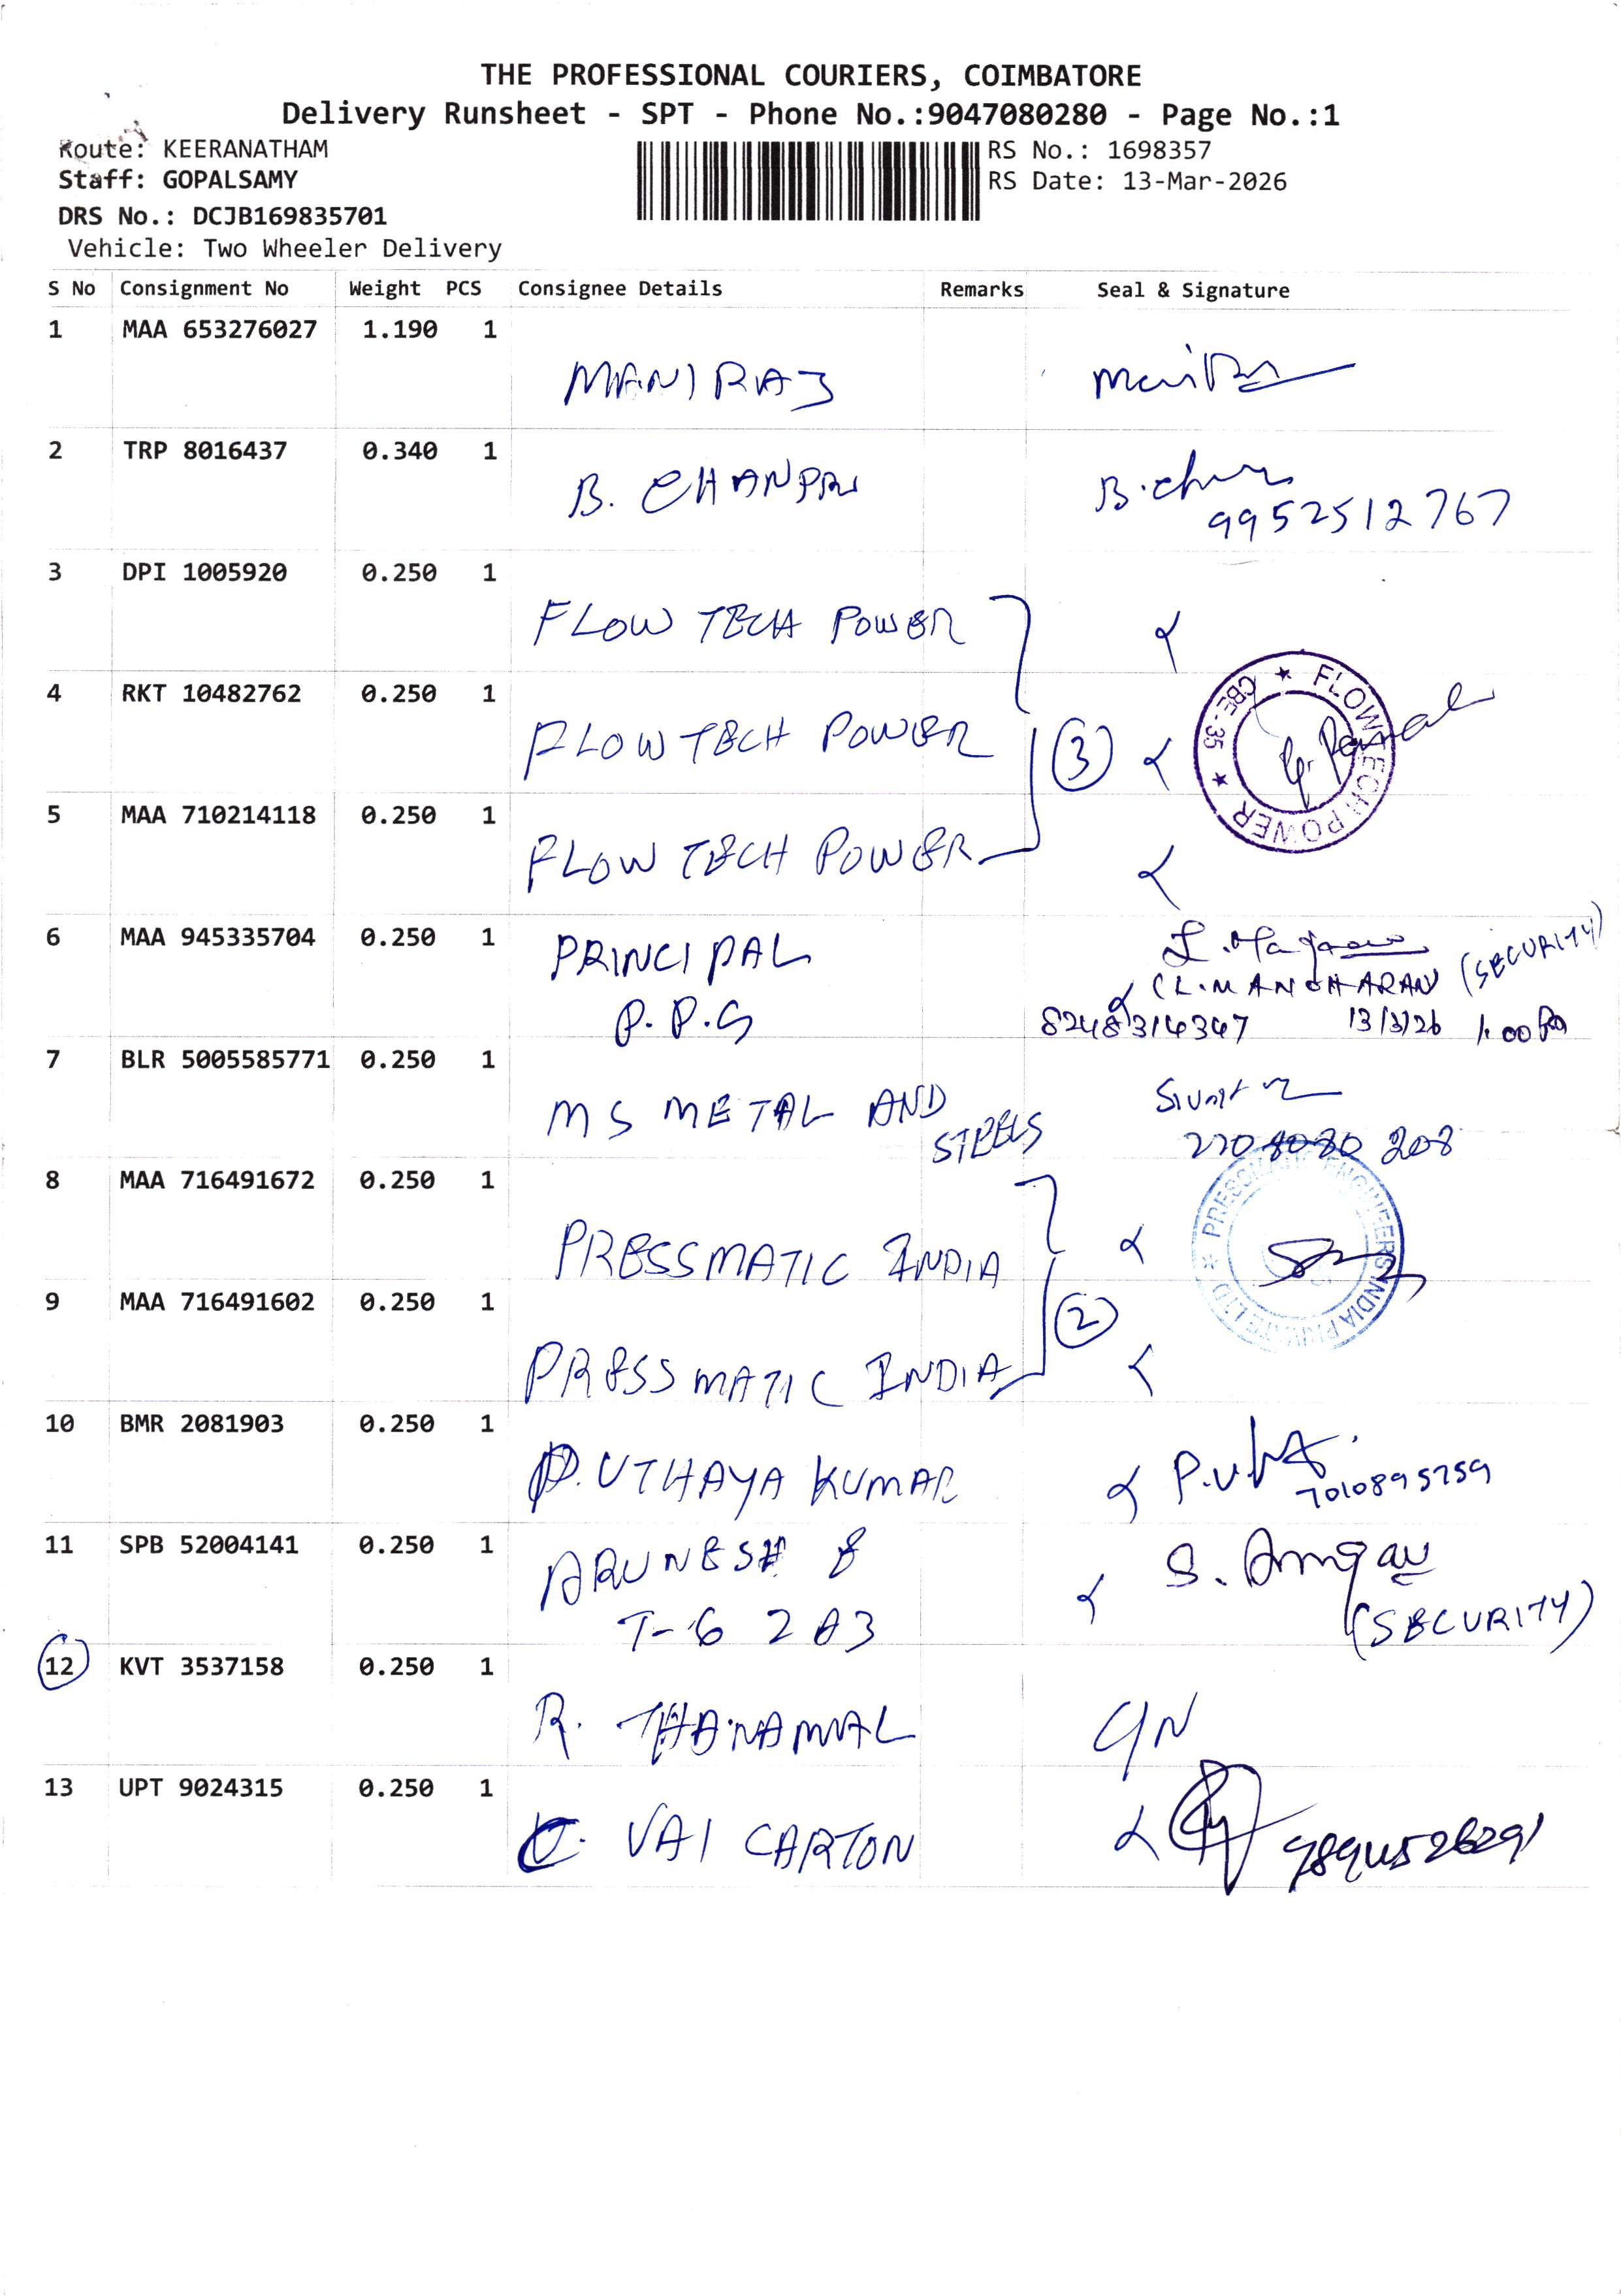 THE PROFESSIONAL COURIERS, COIMBATORE
Delivery Runsheet - SPT - Phone No.:9047080280 - Page No.:1
Route: KEERANATHAM
Staff: GOPALSAMY
DRS No.: DCJB169835701
Vehicle: Two Wheeler Delivery
RS No.: 1698357
RS Date: 13-Mar-2026
S No Consignment No Weight PCS Consignee Details Remarks Seal & Signature
1 MAA 653276027 1.190 1
MANIRAJ
2 TRP 8016437 0.340 1
B. CHANDRU
9952512767
3 DPI 1005920 0.250 1
FLOW TECH POWER
4 RKT 10482762 0.250 1
FLOW TECH POWER (3)
★ FLOWTECH POWER ★ CBE-35
5 MAA 710214118 0.250 1
FLOW TECH POWER
6 MAA 945335704 0.250 1
PRINCIPAL
P.P.G
(L.MANOHARAN (SECURITY)
8248314347 13/3/26 1.00
7 BLR 5005585771 0.250 1
MS METAL AND
STEELS
8 MAA 716491672 0.250 1
PRESSMATIC INDIA
PRESSMATIC ENGINEERS INDIA PRIVATE LTD
9 MAA 716491602 0.250 1
(2)
PRESSMATIC INDIA
10 BMR 2081903 0.250 1
P.UTHAYA KUMAR
7010895759
11 SPB 52004141 0.250 1
ARUNESH
T-6 2A3
(SECURITY)
12 KVT 3537158 0.250 1
R. THANAMAL
13 UPT 9024315 0.250 1
VAI CARTON